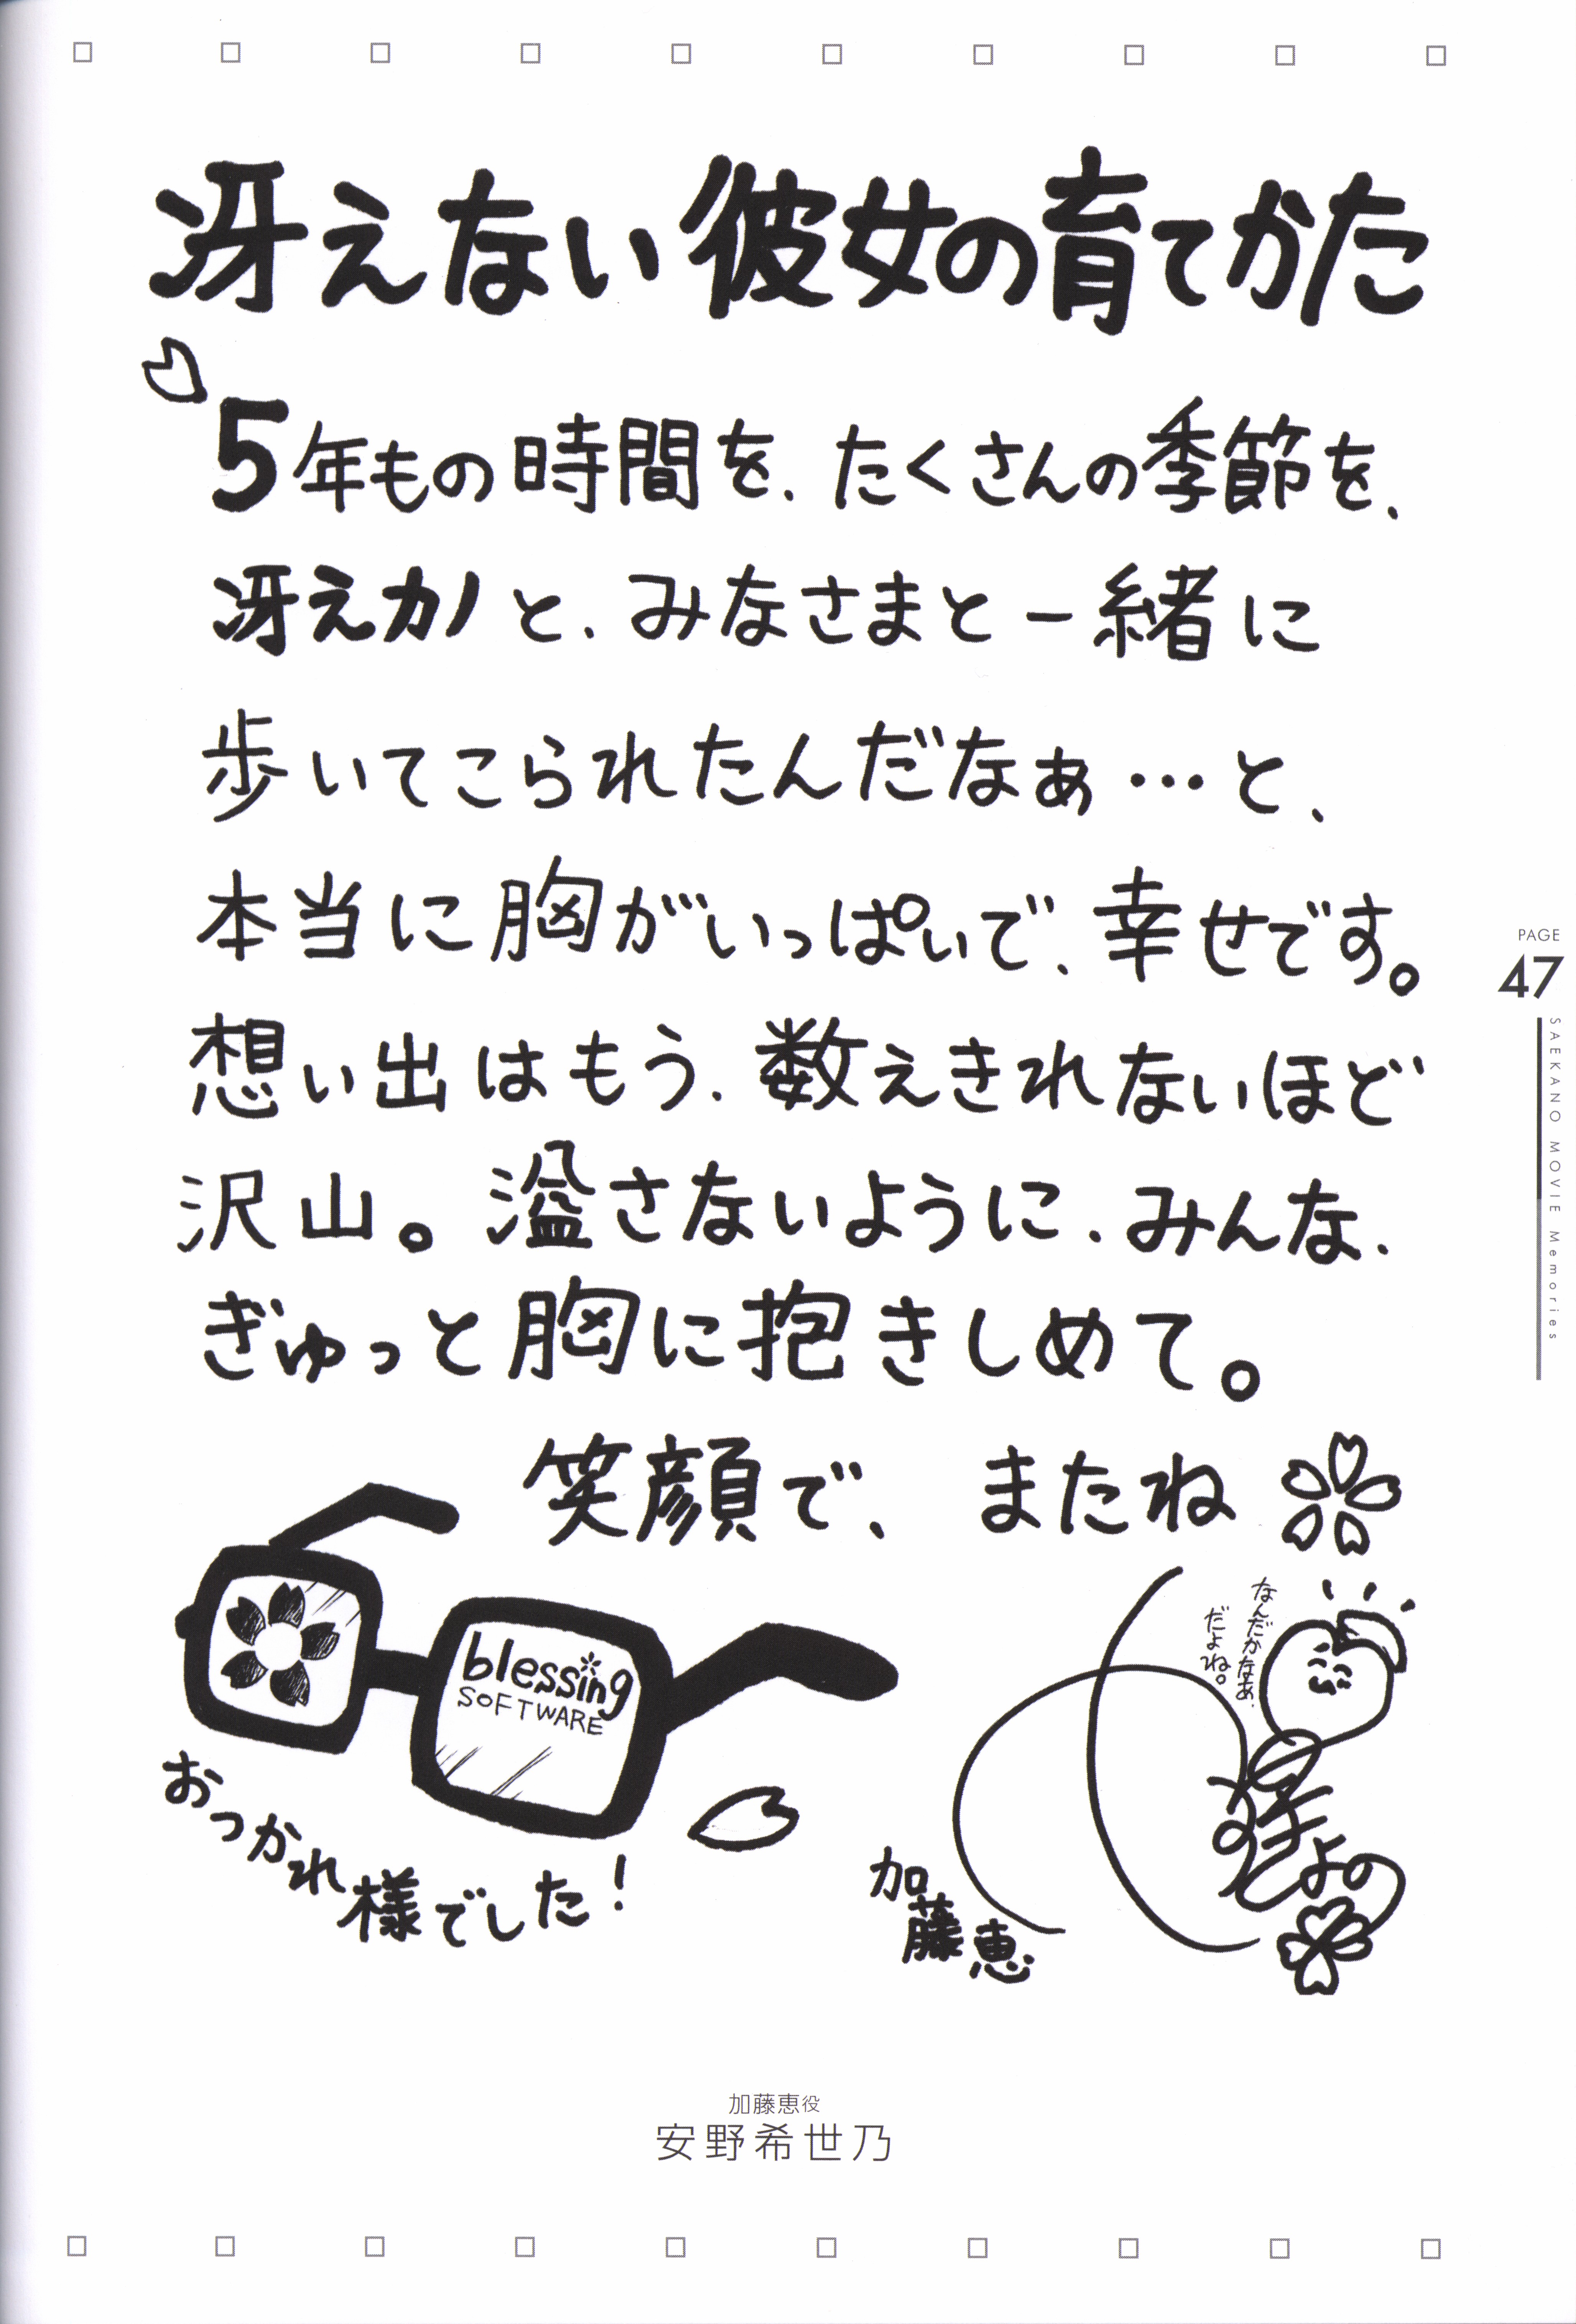 冴えない彼女の育てかた
5年もの時間を、たくさんの季節を、
冴えカノと、みなさまと一緒に
歩いてこられたんだなぁ…と、
本当に胸がいっぱいで、幸せです。
想い出はもう、数えきれないほど
沢山。溢さないように、みんな、
ぎゅっと胸に抱きしめて。
笑顔で、またね
blessing
SOFTWARE
おつかれ様でした!
なんだかなあ、
だよね。
加藤恵
加藤恵役
安野希世乃
PAGE
47
SAEKANO MOVIE Memories